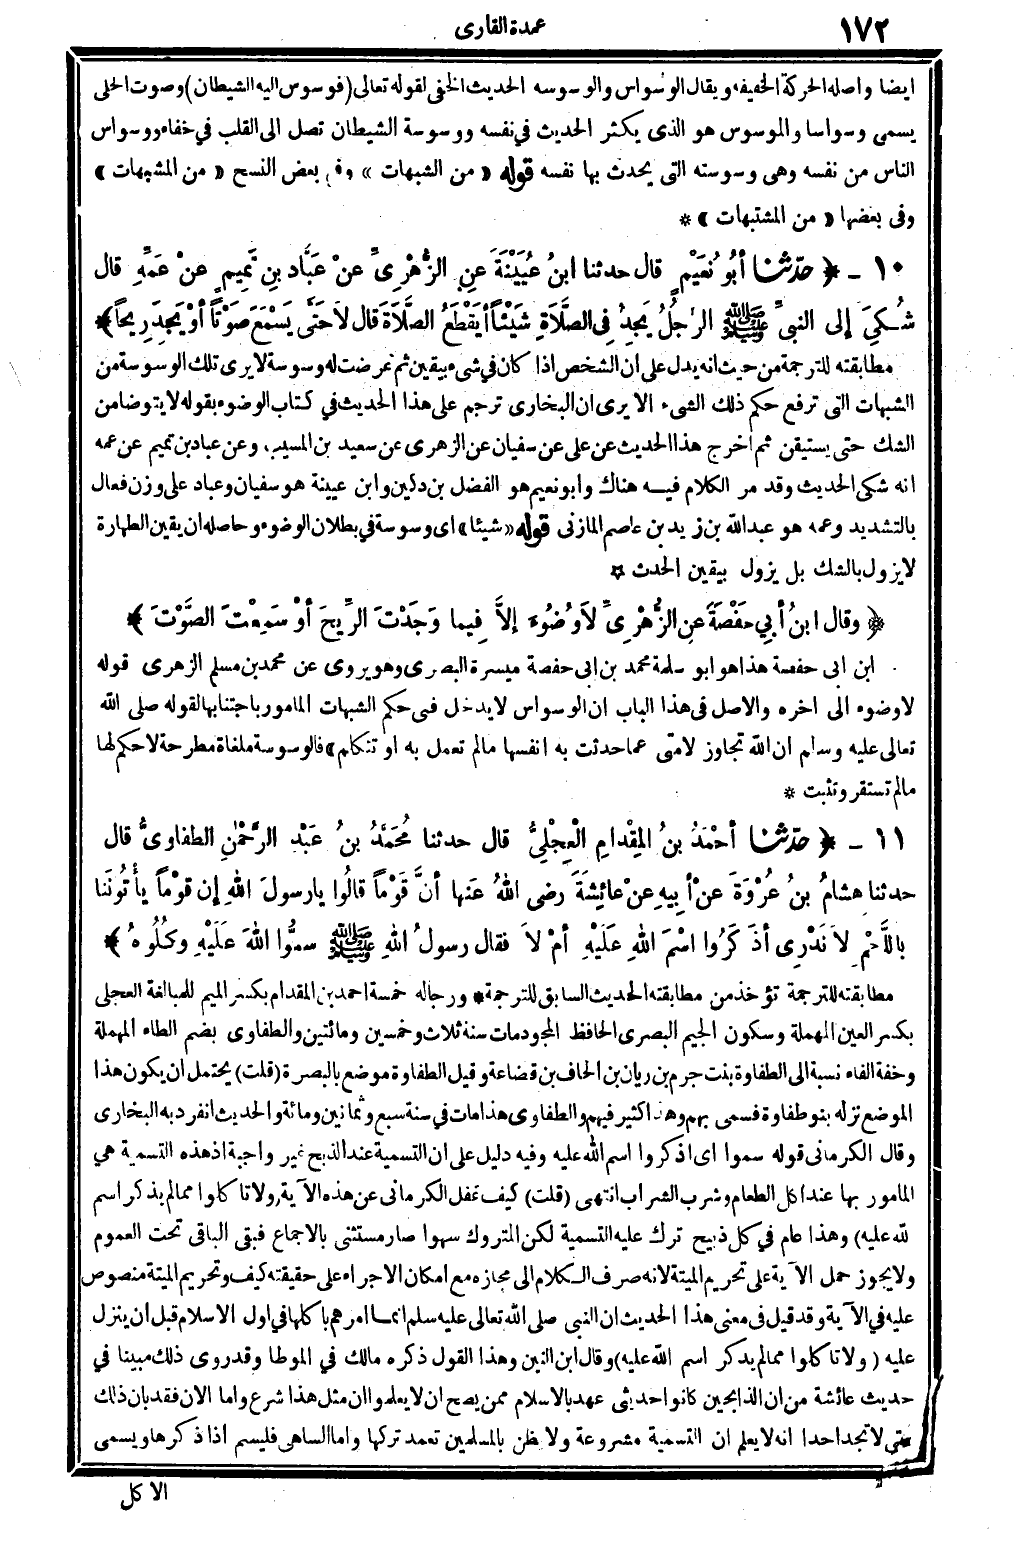 ١٧٢
عمدة القارى
ايضا واصله الحركة الخفيفه ويقال الوسواس والوسوسه الحديث الخفى لقوله تعالى (فوسوس اليه الشيطان) وصوت الحلى
يسمى وسواسا والموسوس هو الذى يكثر الحديث في نفسه ووسوسة الشيطان تصل الى القلب في خفاء ووسواس
الناس من نفسه وهى وسوسته التى يحدث بها نفسه قوله « من الشبهات » وفى بعض النسخ « من المشبهات »
وفى بعضها « من المشتبهات » *
١٠ - ﴿ حَدَّثَنَا أبُو نُعَيْمٍ قال حدثنا ابنُ عُيَيْنَةَ عَنِ الزُّهْرِىِّ عنْ عَبَّادِ بنِ تَمِيمٍ عنْ عَمِّهِ قال
شُكِىَ إلى النبىِّ ﷺ الرَّجُلُ يَجِدُ فِى الصَّلَاةِ شَيْئًا أيَقْطَعُ الصَّلَاةَ قال لَا حَتَّى يَسْمَعَ صَوْتًا أوْ يَجِدَ رِيحًا ﴾
مطابقته للترجمة من حيث انه يدل على ان الشخص اذا كان في شىء بيقين ثم عرضت له وسوسة لا يرى تلك الوسوسة من
الشبهات التى ترفع حكم ذلك الشىء الا يرى ان البخارى ترجم على هذا الحديث في كتاب الوضوء بقوله لا يتوضا من
الشك حتى يستيقن ثم اخرج هذا الحديث عن على عن سفيان عن الزهرى عن سعيد بن المسيب وعن عباد بن تميم عن عمه
انه شكى الحديث وقد مر الكلام فيه هناك وابو نعيم هو الفضل بن دكين وابن عيينة هو سفيان وعباد على وزن فعال
بالتشديد وعمه هو عبد الله بن زيد بن عاصم المازنى قوله «شيئا» اى وسوسة في بطلان الوضوء وحاصله ان يقين الطهارة
لا يزول بالشك بل يزول بيقين الحدث ☆
﴿ وقال ابنُ أبِي حَفْصَةَ عَنِ الزُّهْرِىِّ لَا وُضُوءَ إلَّا فِيما وَجَدْتَ الرِّيحَ أوْ سَمِعْتَ الصَّوْتَ ﴾
ابن ابى حفصة هذا هو ابو سلمة محمد بن ابى حفصة ميسرة البصرى وهو يروى عن محمد بن مسلم الزهرى قوله
لا وضوء الى اخره والاصل في هذا الباب ان الوسواس لا يدخل فى حكم الشبهات المامور باجتنابها لقوله صلى الله
تعالى عليه وسلم ان الله تجاوز لامتى عما حدثت به انفسها مالم تعمل به او تتكلم» فالوسوسة ملغاة مطرحة لا حكم لها
مالم تستقر وتثبت *
١١ - ﴿ حَدَّثَنَا أحْمَدُ بنُ المِقْدَامِ الْعِجْلِىُّ قال حدثنا مُحَمَّدُ بنُ عَبْدِ الرَّحْمٰنِ الطفاوىُّ قال
حدثنا هِشامُ بنُ عُرْوَةَ عنْ أبِيهِ عنْ عائِشَةَ رضى اللهُ عَنها أنَّ قَوْمًا قالُوا يا رسولَ اللهِ إن قوْمًا يأْتُونَنا
بِاللَّحْمِ لَا نَدْرِى أذَكَرُوا اسْمَ اللهِ عَلَيْهِ أمْ لَا فقال رسولُ اللهِ ﷺ سمُّوا اللهَ عَلَيْهِ وكُلُوهُ ﴾
مطابقته للترجمة تؤخذ من مطابقته الحديث السابق للترجمة * ورجاله خمسة احمد بن المقدام بكسر الميم للمبالغة العجلى
بكسر العين المهملة وسكون الجيم البصرى الحافظ المجود مات سنة ثلاث وخمسين ومائتين والطفاوى بضم الطاء المهملة
وخفة الفاء نسبة الى الطفاوة بنت جرم بن ريان بن الحاف بن قضاعة وقيل الطفاوة موضع بالبصرة (قلت) يحتمل ان يكون هذا
الموضع نزله بنو طفاوة فسمى بهم وهذا كثير فيهم والطفاوى هذا مات في سنة سبع وثمانين ومائة والحديث انفرد به البخارى
وقال الكرمانى قوله سموا اى اذكروا اسم الله عليه وفيه دليل على ان التسمية عند الذبح غير واجبة اذ هذه التسمية هي
المامور بها عند اكل الطعام وشرب الشراب انتهى (قلت) كيف غفل الكرمانى عن هذه الآية (ولا تاكلوا مما لم يذكر اسم
لله عليه) وهذا عام في كل ذبيح ترك عليه التسمية لكن المتروك سهوا صار مستثنى بالاجماع فبقى الباقى تحت العموم
ولا يجوز حمل الآية على تحريم الميتة لانه صرف الكلام الى مجازه مع امكان الاجراء على حقيقته كيف وتحريم الميتة منصوص
عليه في الآية وقد قيل فى معنى هذا الحديث ان النبى صلى الله تعالى عليه سلم انما امرهم باكلها في اول الاسلام قبل ان ينزل
عليه ( ولا تاكلوا مما لم يذكر اسم الله عليه) وقال ابن التين وهذا القول ذكره مالك في الموطا وقد روى ذلك مبينا في
حديث عائشة من ان الذابحين كانوا حديثى عهد بالاسلام ممن يصح ان لا يعلموا ان مثل هذا شرع واما الان فقد بان ذلك
حتى لا تجد احدا انه لا يعلم ان التسمية مشروعة ولا يظن بالمسلمين تعمد تركها واما الساهى فليسم اذا ذكرها ويسمى
الاكل